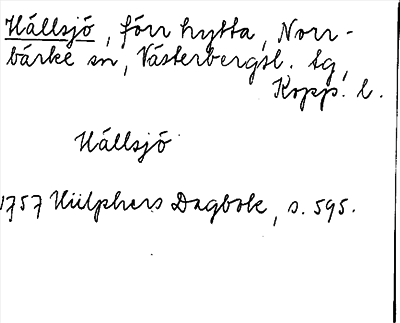 Hällsjö, förr hytta, Norr-
bärke sn, Västerbergsl. tg,
Kopp. l.
Hällsjö
1757 Hülphers Dagbok, s. 595.